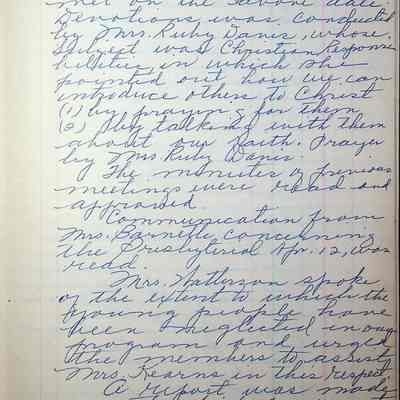 met on the above date.
Devotions was conducted
by Mrs. Ruby Davis, whose
subject was Christian Respons
bilities in which she
pointed out how we can
introduce others to Christ
(1) by praying for them
(2) by talking with them
about our faith. Prayer
by Mrs Ruby Davis.
The minutes of previous
meetings were read and
approved.
Communication from
Mrs. Barnette concerning
the Presbyterial Apr. 12, was
read.
Mrs. Patterson spoke
of the extent to which the
young people have
been neglected in our
program and urged
the members to assist
Mrs. Kearns in this respect
A report was made